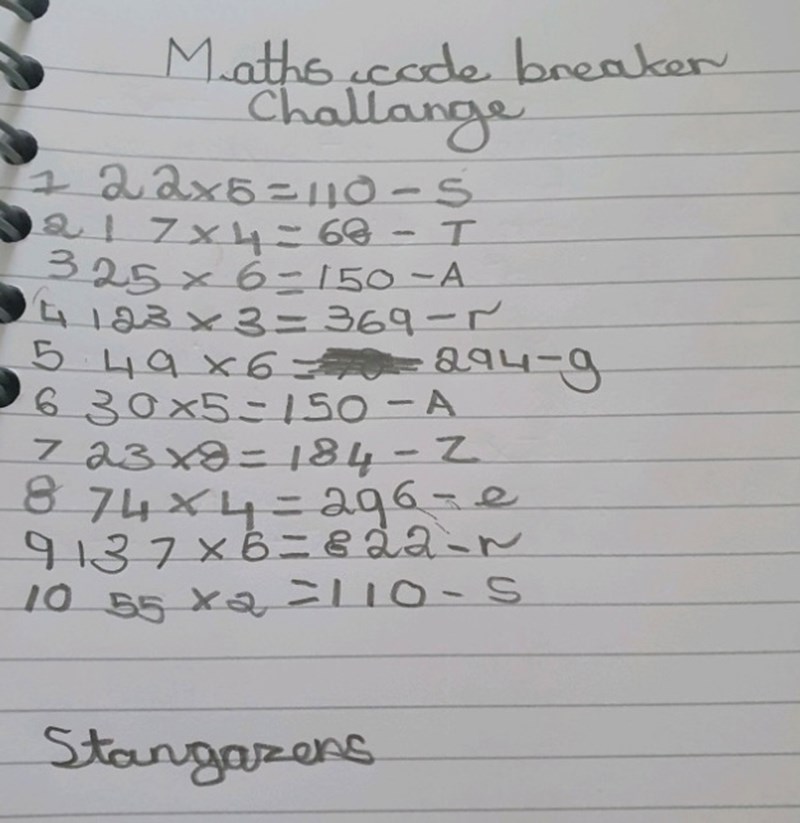 Maths code breaker
Challange
1 22x5=110-S
2 17x4=68-T
3 25x6=150-A
4 123x3=369-r
5 49x6= 294-g
6 30x5=150-A
7 23x8=184-Z
8 74x4=296-e
9 137x6=822-r
10 55x2=110-S
Stargazers